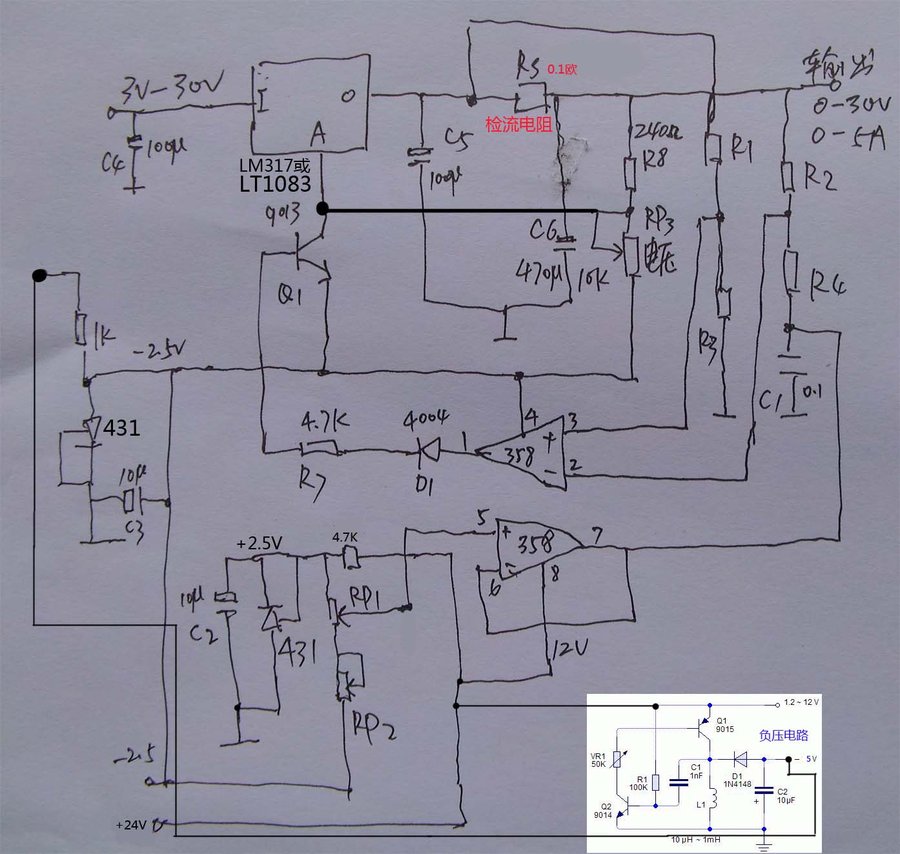 3V-30V
C4
100μ
I
O
A
LM317或
LT1083
C5
100μ
RS
0.1欧
检流电阻
输出
0-30V
0-5A
240Ω
R8
R1
R2
9013
Q1
C6
470μ
RP3
电压
10K
R3
R4
C1
0.1
1K
-2.5V
431
10μ
C3
4.7K
R7
4004
D1
1
4
3
+
358
-
2
+2.5V
4.7K
10μ
C2
431
RP1
RP2
5
+
358
7
6
-
8
12V
-2.5
+24V
1.2~12 V
Q1
9015
负压电路
VR1
50K
R1
100K
C1
1nF
D1
1N4148
- 5V
C2
10μF
+
Q2
9014
L1
10 μH ~ 1mH